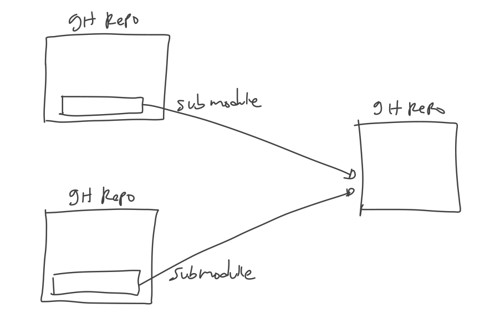 gH Repo
submodule
gH Repo
gH Repo
submodule